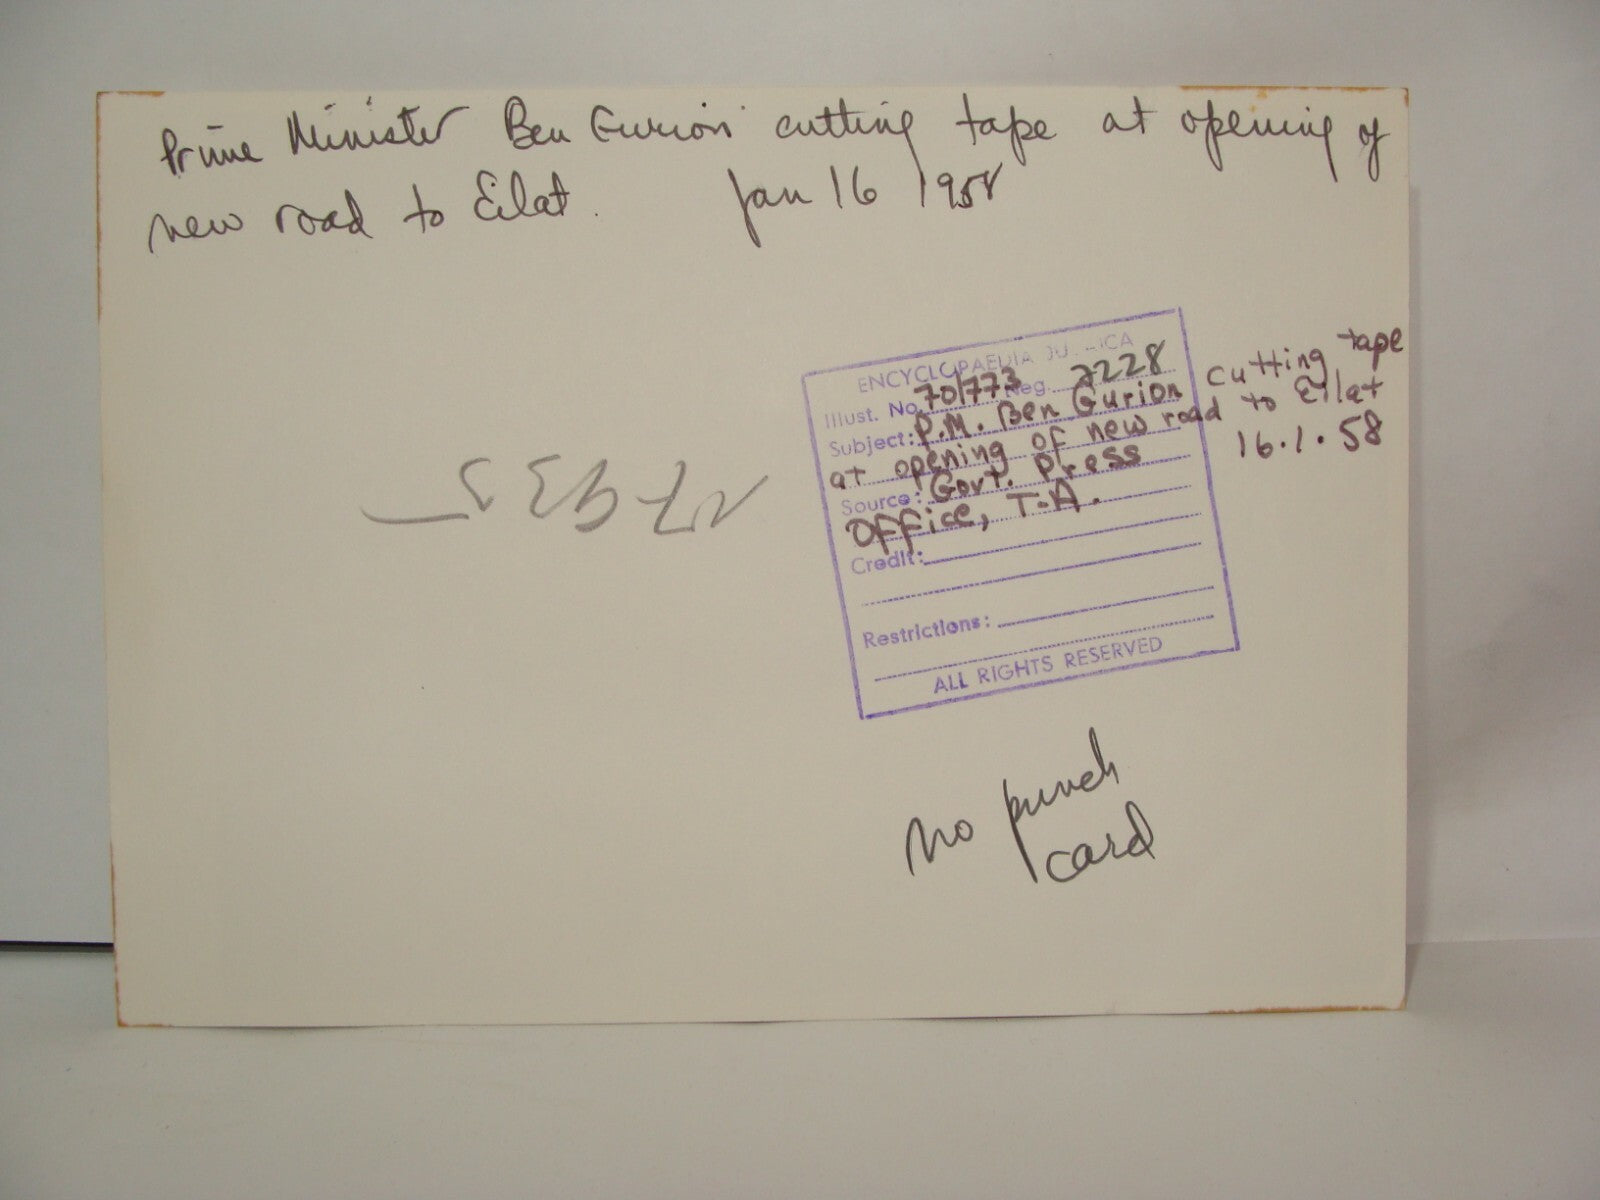 Prime Minister Ben Gurion cutting tape at opening of
new road to Eilat. Jan 16 1958
ENCYCLOPAEDIA JUDAICA
Illust. No. 70/773 Neg. 7228
Subject: P.M. Ben Gurion cutting tape
at opening of new road to Eilat
16.1.58
Source: Govt. Press
Office, T-A.
Credit:
Restrictions:
ALL RIGHTS RESERVED
no punch
card